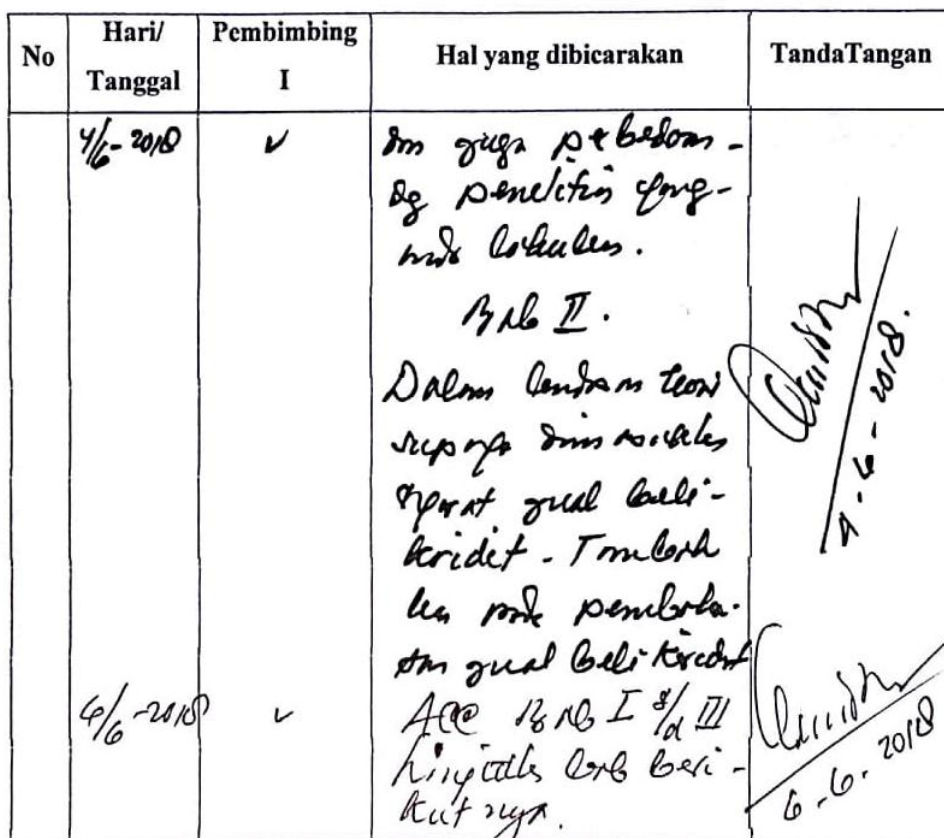 No
Hari/
Tanggal
Pembimbing
I
Hal yang dibicarakan
TandaTangan
4/6-2018
dan juga perbedaan-
dg penelitian yang-
BAB II.
Dalam landasan teori
supaya dimasukkan
syarat jual beli-
kridit - Tambah
kan pada pembaha-
san jual beli kredit
4-6-2018.
6/6-2018
Acc BAB I s/d III
Lanjutkan bab beri-
kutnya.
6-6-2018